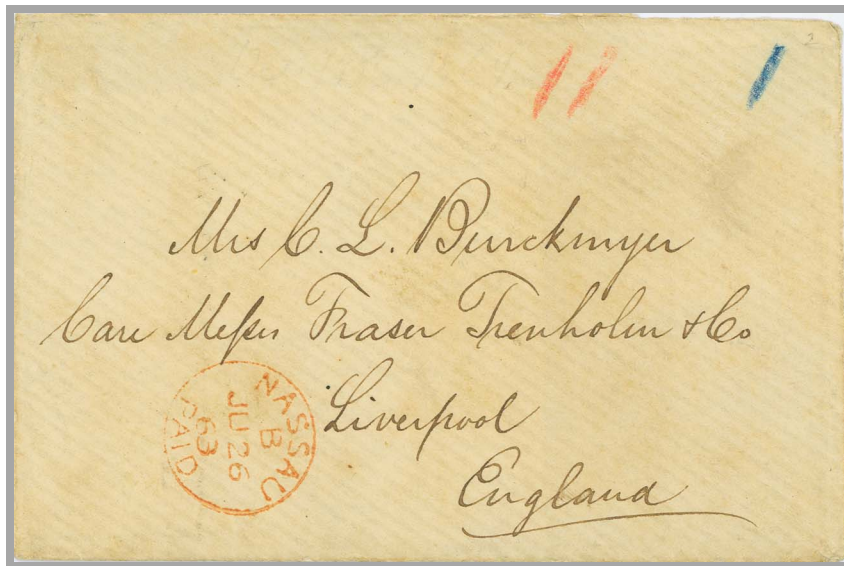 2
Mrs C. L. Burckmyer
Care Messrs Fraser Trenholm & Co
Liverpool
England
NASSAU
B
JU 26
63
PAID